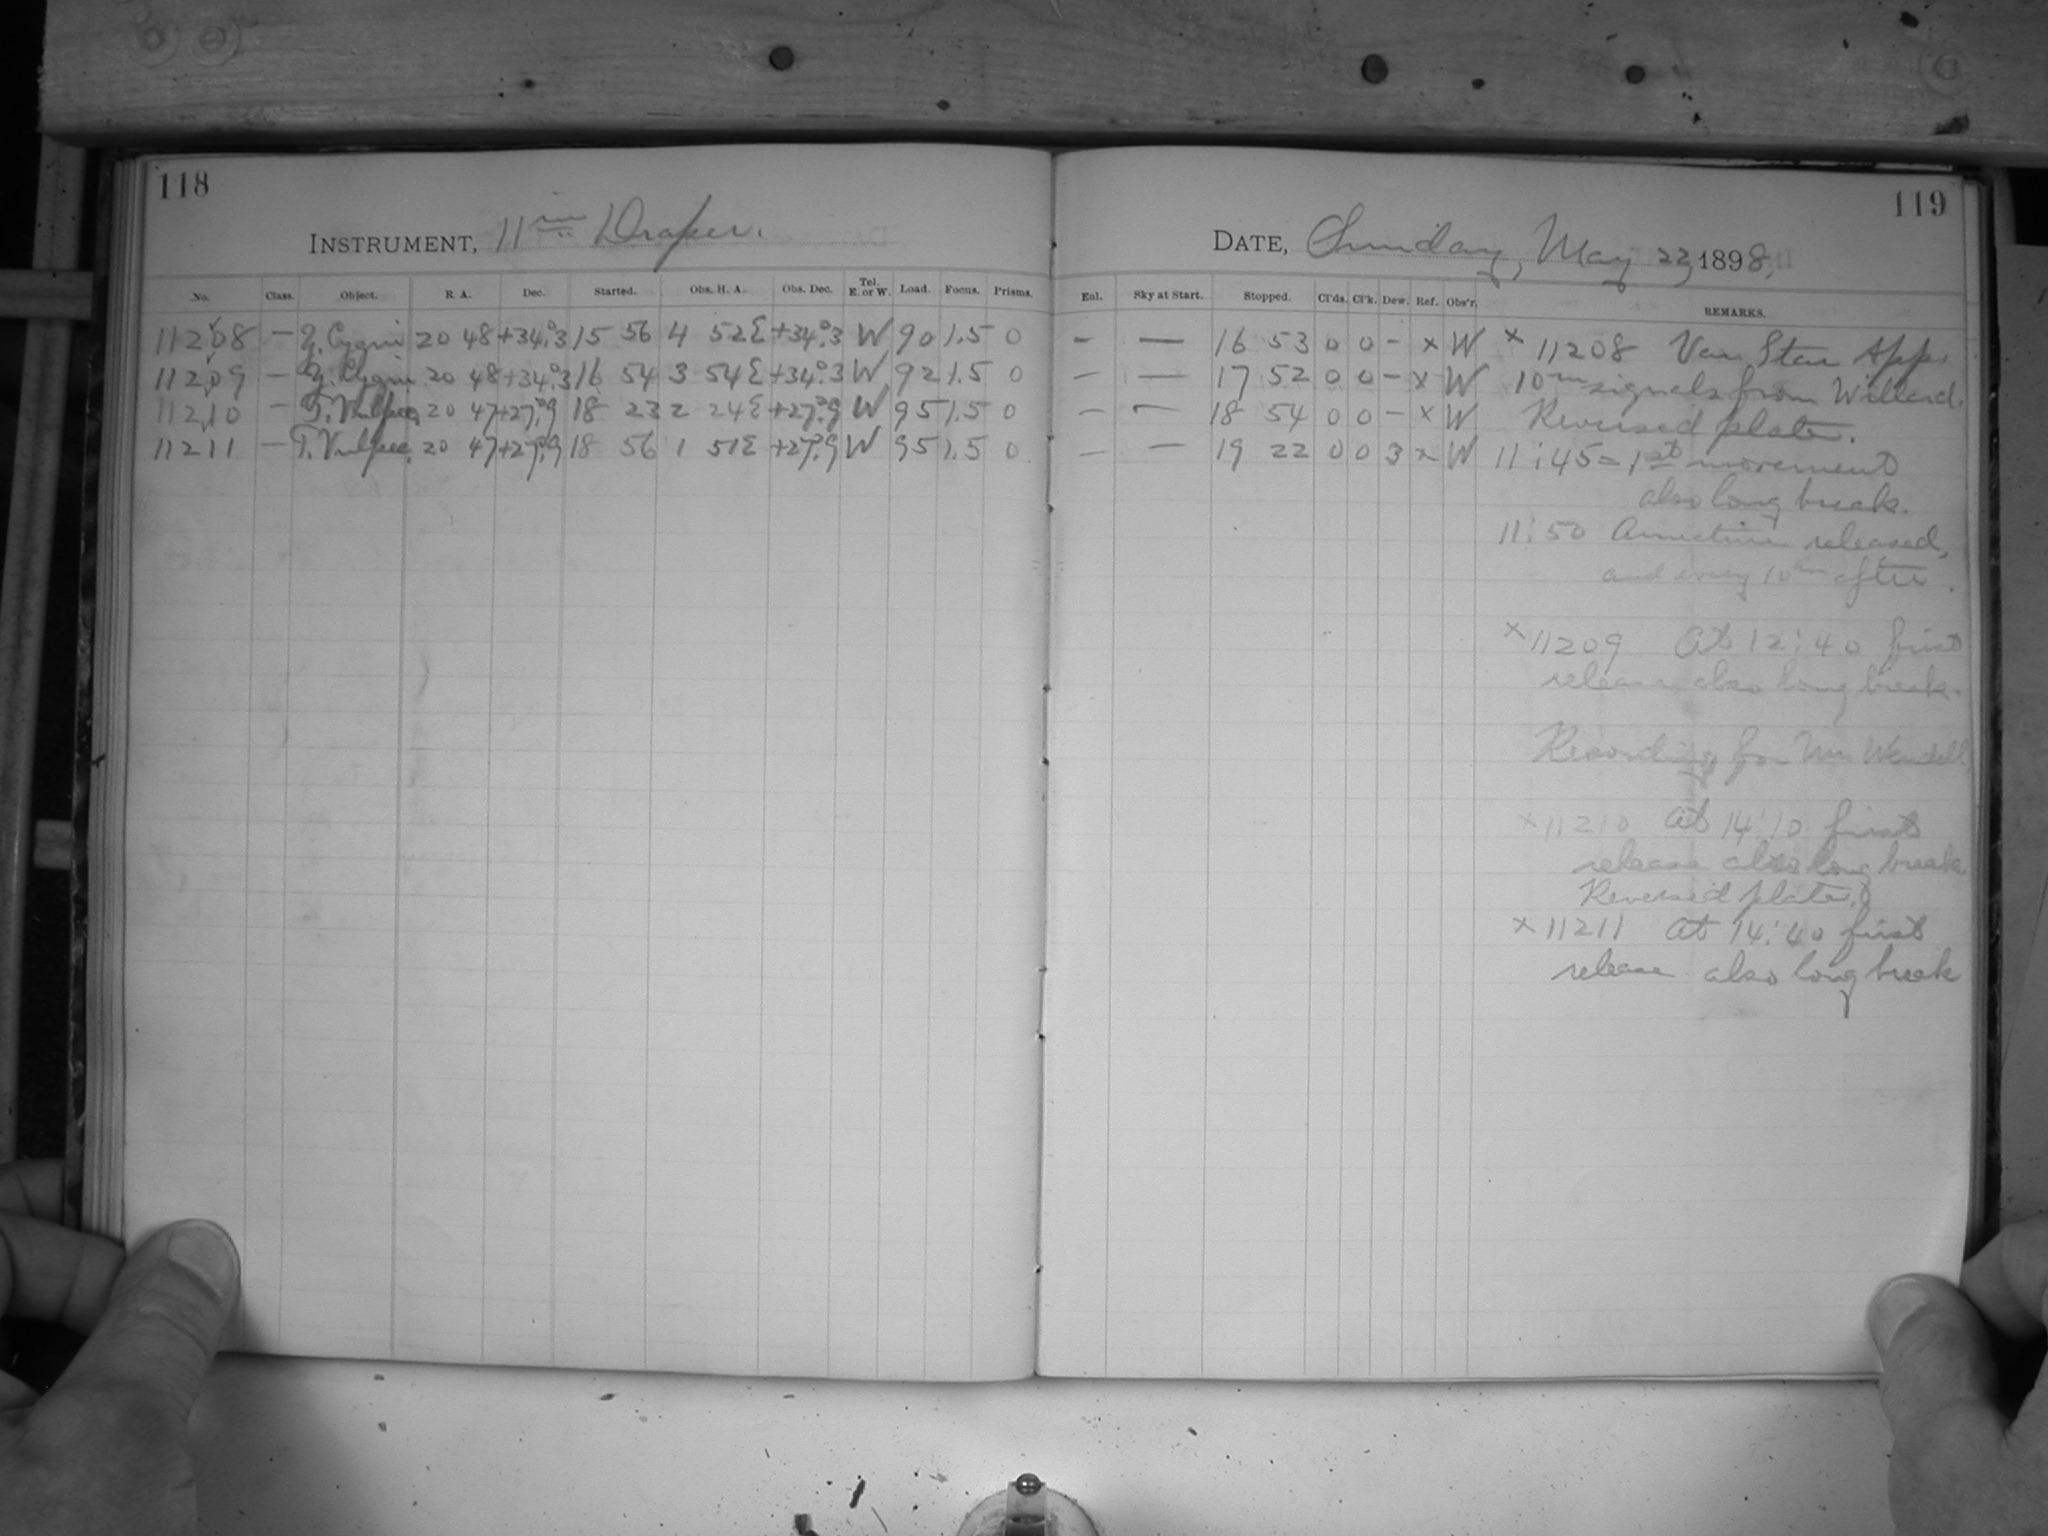 118
INSTRUMENT, 11 in Draper.
No. Class. Object. R. A. Dec. Started. Obs. H. A. Obs. Dec. Tel. E. or W. Load. Focus. Prisms.
11208 — Y. Cygni 20 48 +34°.3 15 56 4 52 E +34°.3 W 90 1.5 0
11209 — Y. Cygni 20 48 +34°.3 16 54 3 54 E +34°.3 W 92 1.5 0
11210 — T. Vulpec. 20 47 +27°.9 18 23 2 24 E +27°.9 W 95 1.5 0
11211 — T. Vulpec. 20 47 +27°.9 18 56 1 51 E +27°.9 W 95 1.5 0
119
DATE, Sunday, May 22, 1898,
Enl. Sky at Start. Stopped. Cl'ds. Cl'k. Dew. Ref. Obs'r. REMARKS.
— — 16 53 0 0 – x W x 11208 Var. Star App.
— — 17 52 0 0 – x W 10m signals from Willard.
— — 18 54 0 0 – x W Reversed plate.
— — 19 22 0 0 3 x W 11:45 = 1st movement
also long break.
11:50 released,
and every 10m after.
x 11209 At 12:40 first
release also long break.
Recording for Mr Wendell
x 11210 at 14:10 first
release also long break
Reversed plate.
x 11211 at 14:40 first
release also long break